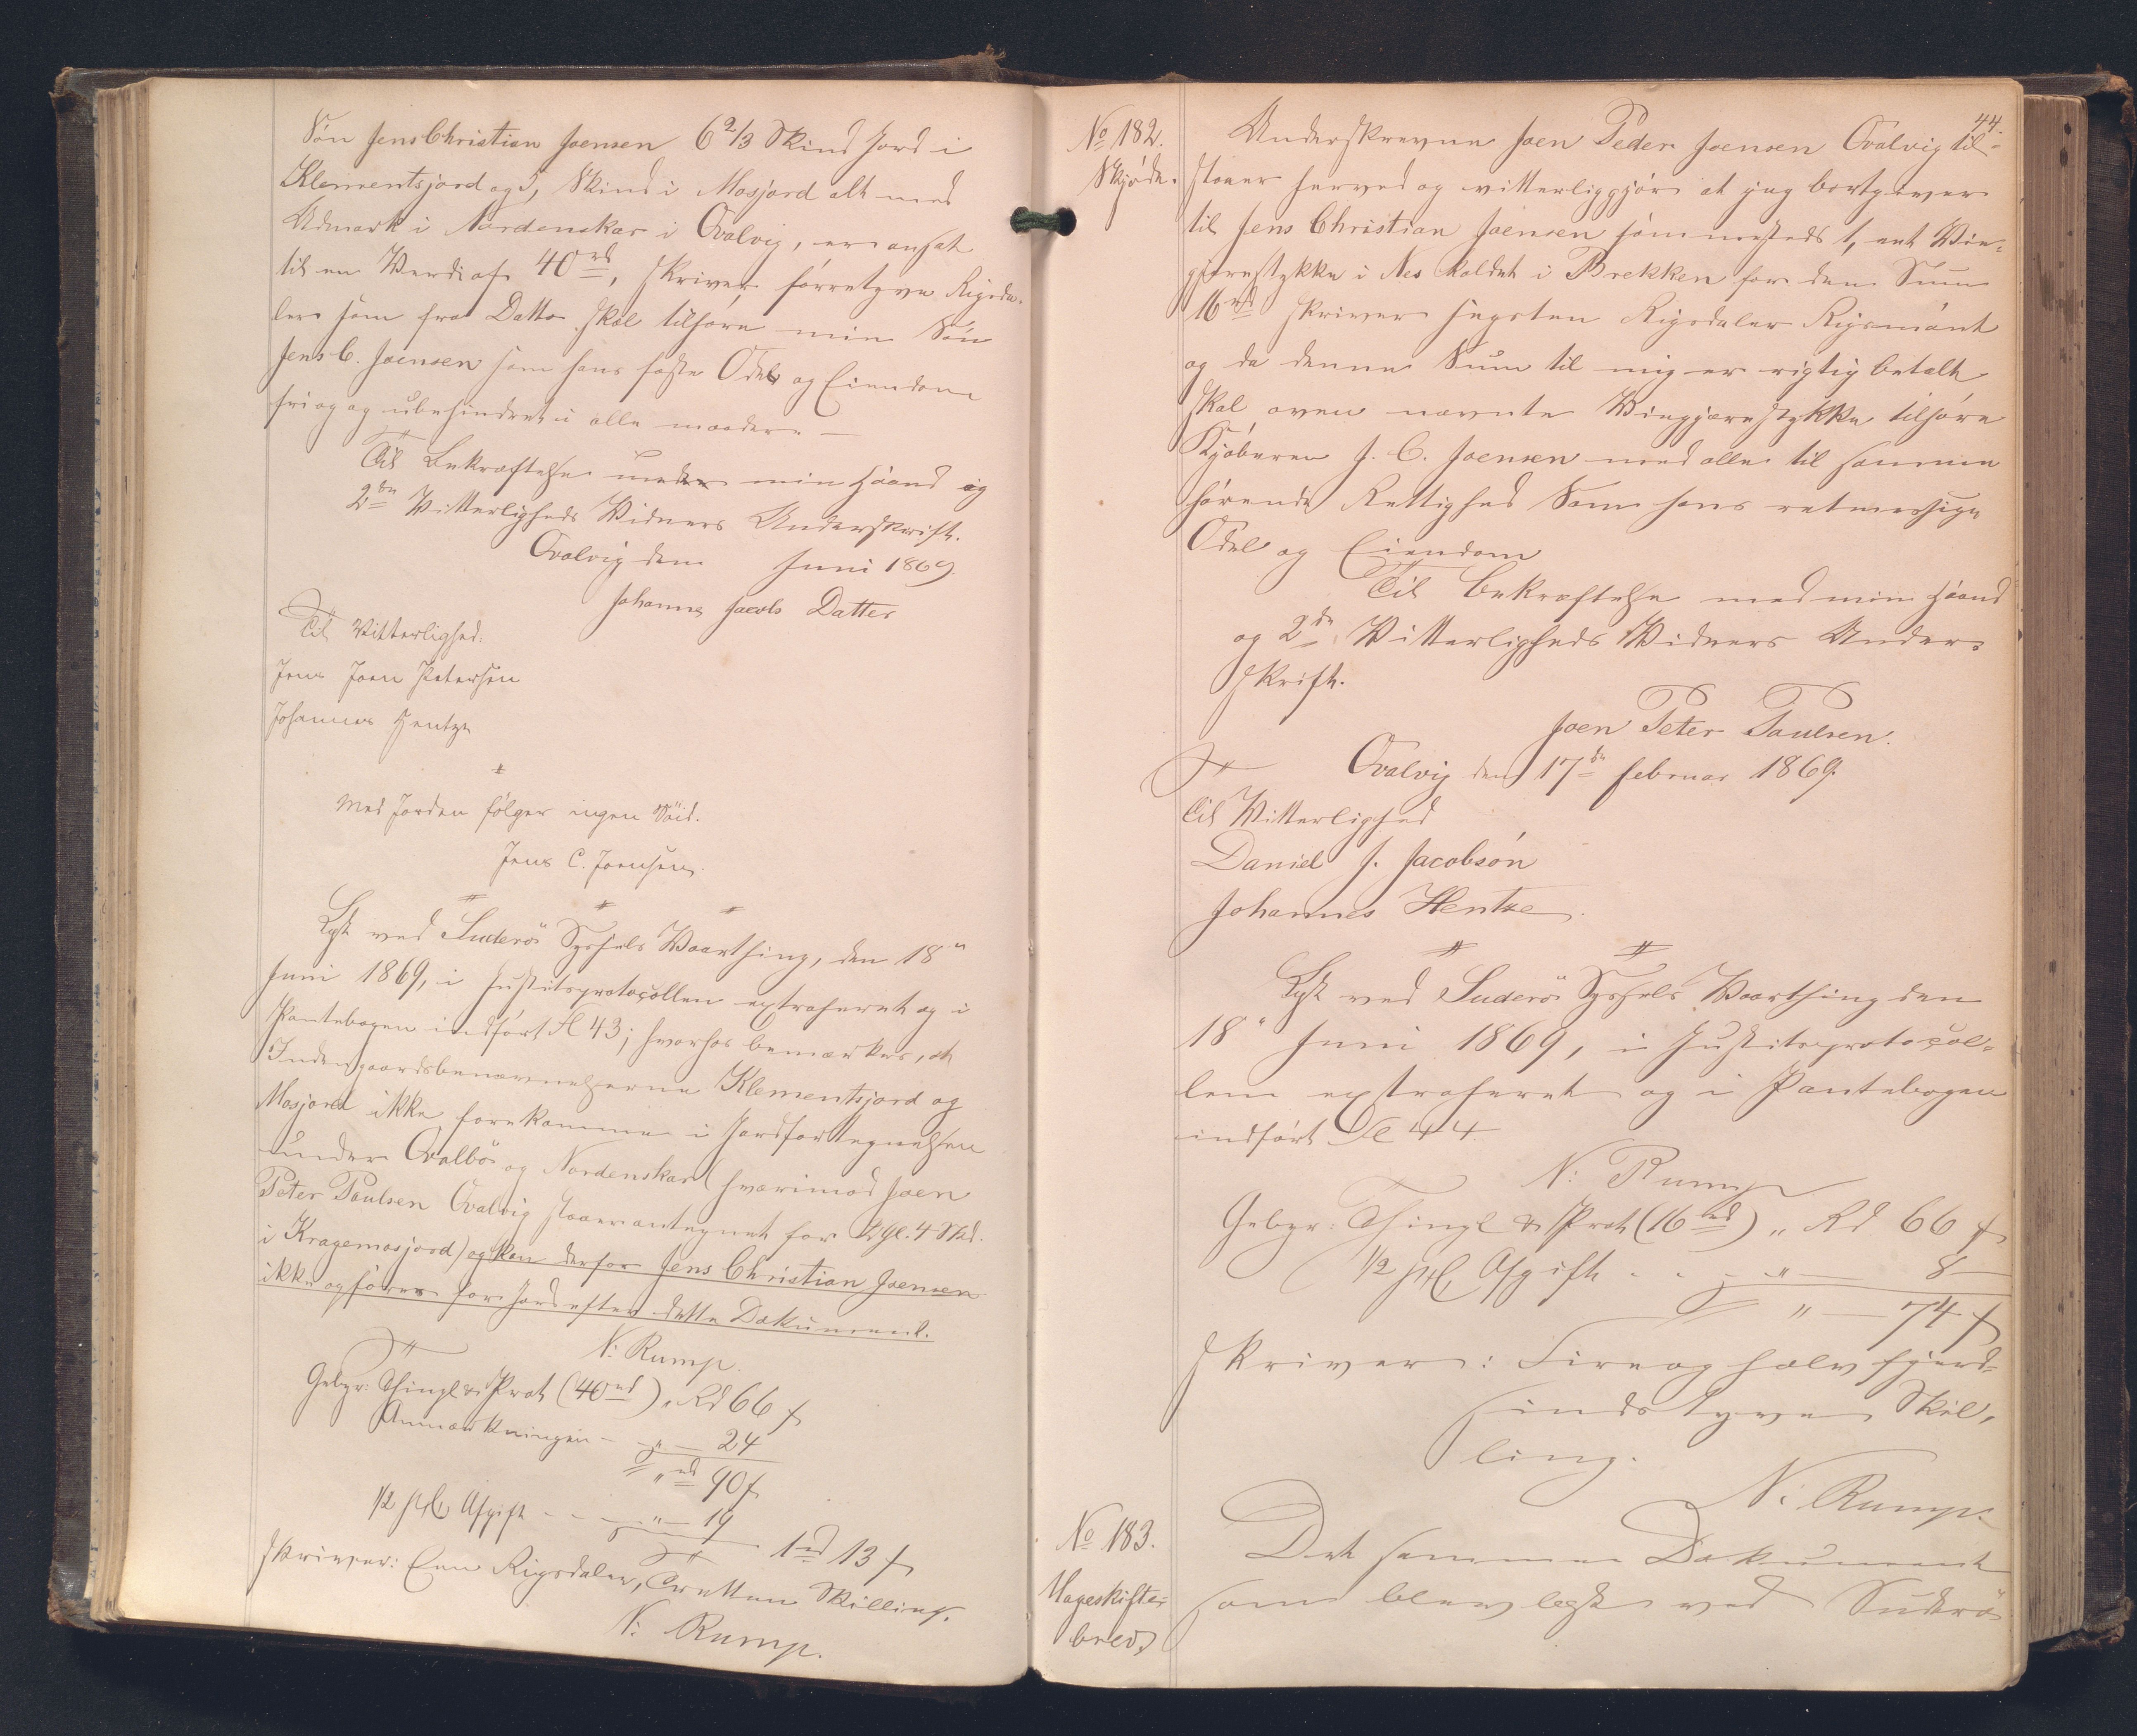 Søn Jens Christian Joensen 6 2/3 Skind Jord i
Klementsjord og 5, Skind i Mosjord alt med
Udmark i Nordenskar i Qvalvig, er ansat
til en Verdi af 40 rd, skriver førretyve Rigsda-
ler som fra Datto skal tilhøre min Søn
Jens C. Joensen som hans faste Odel og Eiendom
fri og og ubehindret i alle maader. —
Til Bekræftelse under min Haand og
2de Vitterligheds Vidners Underskrift.
Qvalvig den Juni 1869.
Johanne Jacobs Datter
Til Vitterlighed:
Jens Joen Petersen
Johannes Hentze
Med Jorden følger ingen Röid.
Jens C. Joensen.
Læst ved Suderö Syssels Vaarthing, den 18"
Juni 1869, i Justitsprotocollen extraheret og i
Pantebogen indført Fol 43; hvorhos bemærkes, at
Indengaardsbenævnelserne Klementsjord og
Mosjord ikke forekomme i Jordfortegnelsen
under Qvalbö og Nordenskar (hvorimod Joen
Peter Poulsen Qvalvig staaer antegnet for 2 Gl. 4 Skd.
i Kragemosjord) og kan derfor Jens Christian Joensen
ikke opføres for Jord efter dette Dokument.
N: Rump.
Gebyr: Thingl & Prot (40 rd) „ Rd 66 ß
Anmærkningen - „ — 24
„ rd 90 ß
1/2 pCt Afgift - - „ — 19
1 rd 13 ß
skriver: Een Rigsdaler, Tretten Skilling.
N: Rump.
44.
No 182.
Skjøde.
Underskrevne Joen Peder Joensen Qvalvig til-
staaer herved og vitterliggjør at jeg bortgiver
til Jens Christian Joensen sammesteds 1, eet Vin-
gjernstykke i Nes kaldet i Brekken for den Sum
16 rd skriver sexten Rigsdaler Rigsmønt
og da denne Sum til mig er rigtig betalt
skal oven nævnte Vingjærnstykke tilhøre
Kjøberen J. C. Joensen med alle til samme
hørende Rettighed Som hans retmessige
Odel og Eiendom
Til Bekræftelse med min Haand
og 2de Vitterligheds Vidners Under-
skrift.
Joen Peter Poulsen.
Qvalvig den 17de Februar 1869.
Til Vitterlighed
Daniel J. Jacobsøn
Johannes Hentze.
Læst ved Suderö Syssels Vaarthing den
18" Juni 1869, i Justitsprotocol-
len extraheret og i Pantebogen
indført Fol 44.
N: Rump
Gebyr: Thingl & Prot (16 rd) „ Rd 66 ß
1/2 pCt Afgift - - „ — 8 —
„ — 74 ß
skriver: Fire og halvfjerd-
sindstyve Skil-
ling.
N: Rump.
No 183.
Mageskifte-
brev.
Det samme Dokument
som blev læst ved Suderö